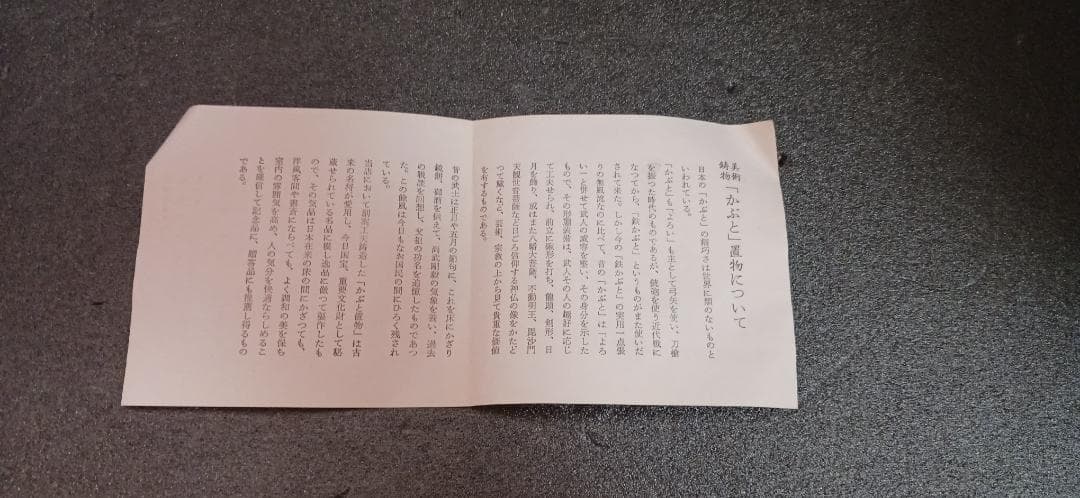 美術鋳物「かぶと」置物について
日本の「かぶと」の精巧さは世界に類のないものと
いわれている。
「かぶと」も「よろい」も主として弓矢を使い、刀槍
を振った時代のものであるが、銃砲を使う近代戦に
なつてから、「鉄かぶと」というものがまた使いだ
されて来た。しかし今の「鉄かぶと」の実用一点張
りの無風流なのに比べて、昔の「かぶと」は「よろ
い」と併せて武人の威容を整い、その身分を示した
もので、その形態装飾は、武人その人の趣好に応じ
て工夫せられ、前立に鍬形を打ち、龍頭、剣形、日
月を飾り、或はまた八幡大菩薩、不動明王、毘沙門
天観世音菩薩など日ごろ信仰する神仏の像をかたど
つて誠くなら、芸術、宗教の上から見て貴重な価値
を有するものである。
昔の武士は正月や五月の節句に、これを床にかざり
鏡餅、御酒を供えて、尚武剛毅の気象を養い、過去
の戦歴を回想し、父祖の功名を追憶したものであつ
た。この餘風は今日もなお国民の間にひろく残され
ている。
当店において創製した「かぶと置物」は古
来の名将が愛用し、今日国宝、重要文化財として秘
蔵せられている名品に模し逸品に倣つて製作したも
ので、その気品は日本在来の床の間にかざつても、
洋風客間や書斎にならべても、よく調和の美を保ち
室内の雰囲気を高め、人の気分を快適ならしめるこ
とを確信して記念品に、贈答品にも推薦し得るもの
である。